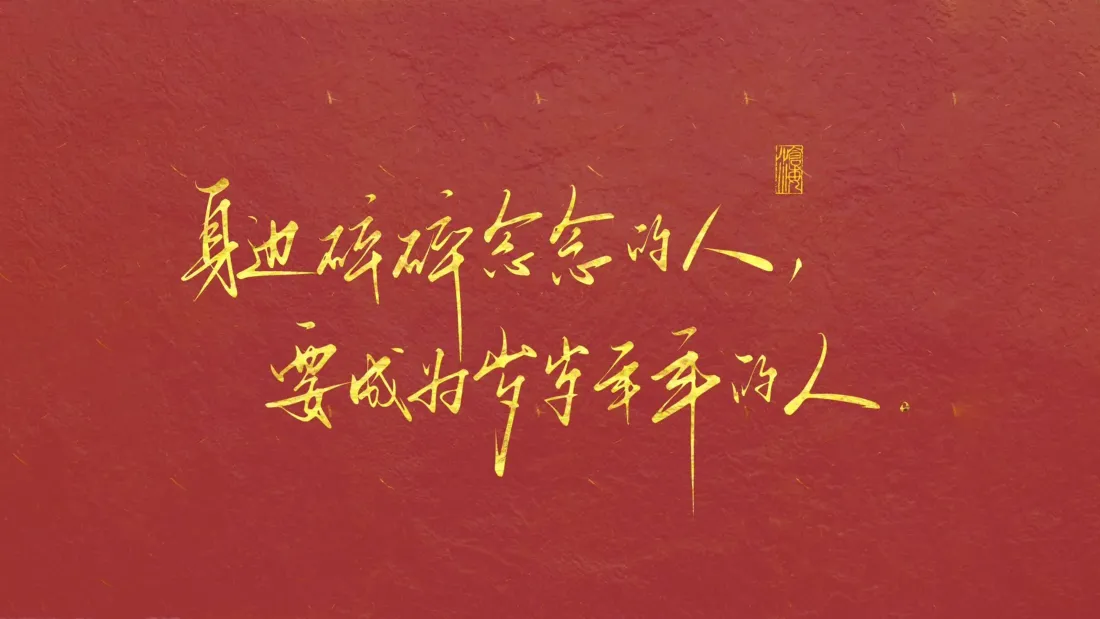 沧海
身边碎碎念念的人，
要成为岁岁年年的人。